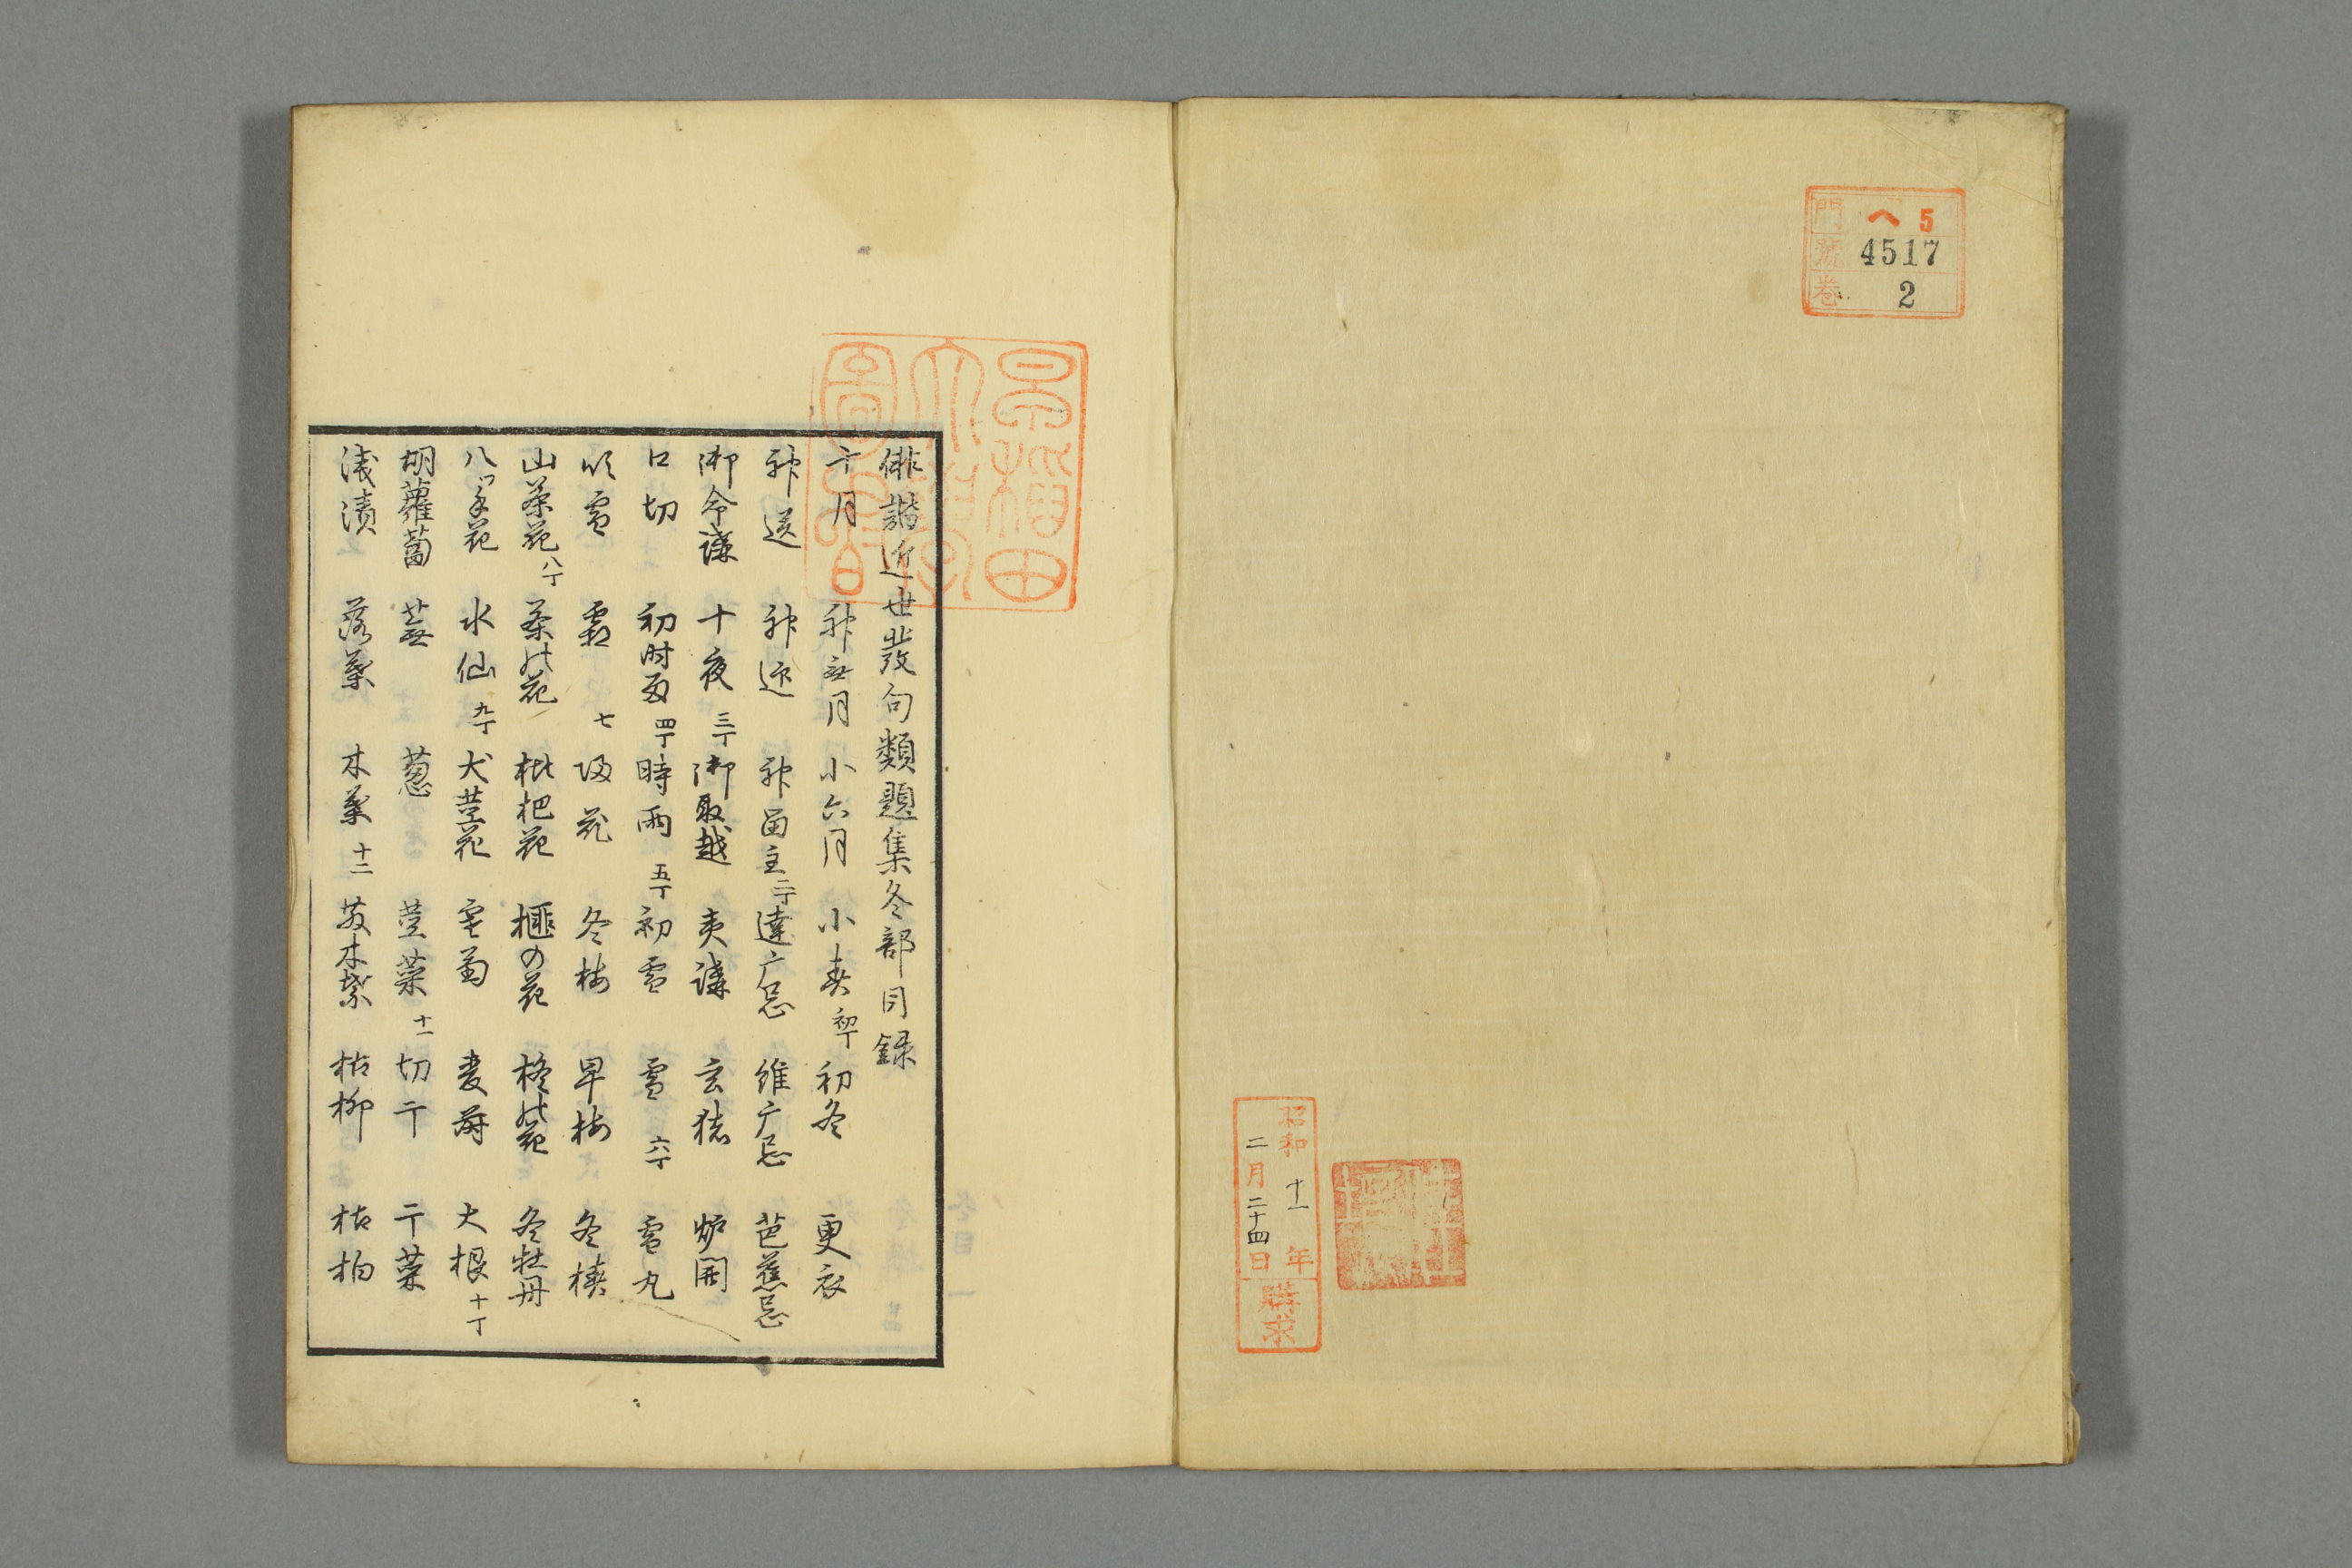 門 ヘ 5
號 4517
巻 2
昭和 十一 年
二月二十四日
購求
早稲田
大學
圖書
俳諧近世発句類題集冬部目録
十月 神無月 小六月 小春 初丁 初冬 更衣
神送 神迎 神留主 二丁 達广忌 維广忌 芭蕉忌
御命講 十夜 三丁 御取越 夷講 玄猪 炉開
口切 初時雨 四丁 時雨 五丁 初雪 雪 六丁 雪丸
吹雪 霜 七 帰花 冬梅 早梅 冬椿
山茶花 八丁 茶の花 枇杷花 榧の花 柊の花 冬牡丹
八ツ手花 水仙 九丁 大茎花 寒菊 麦蒔 大根 十丁
胡蘿蔔 蕪 葱 茎菜 十一 切干 干菜
浅漬 落葉 木葉 十二 敷木葉 枯柳 枯柏